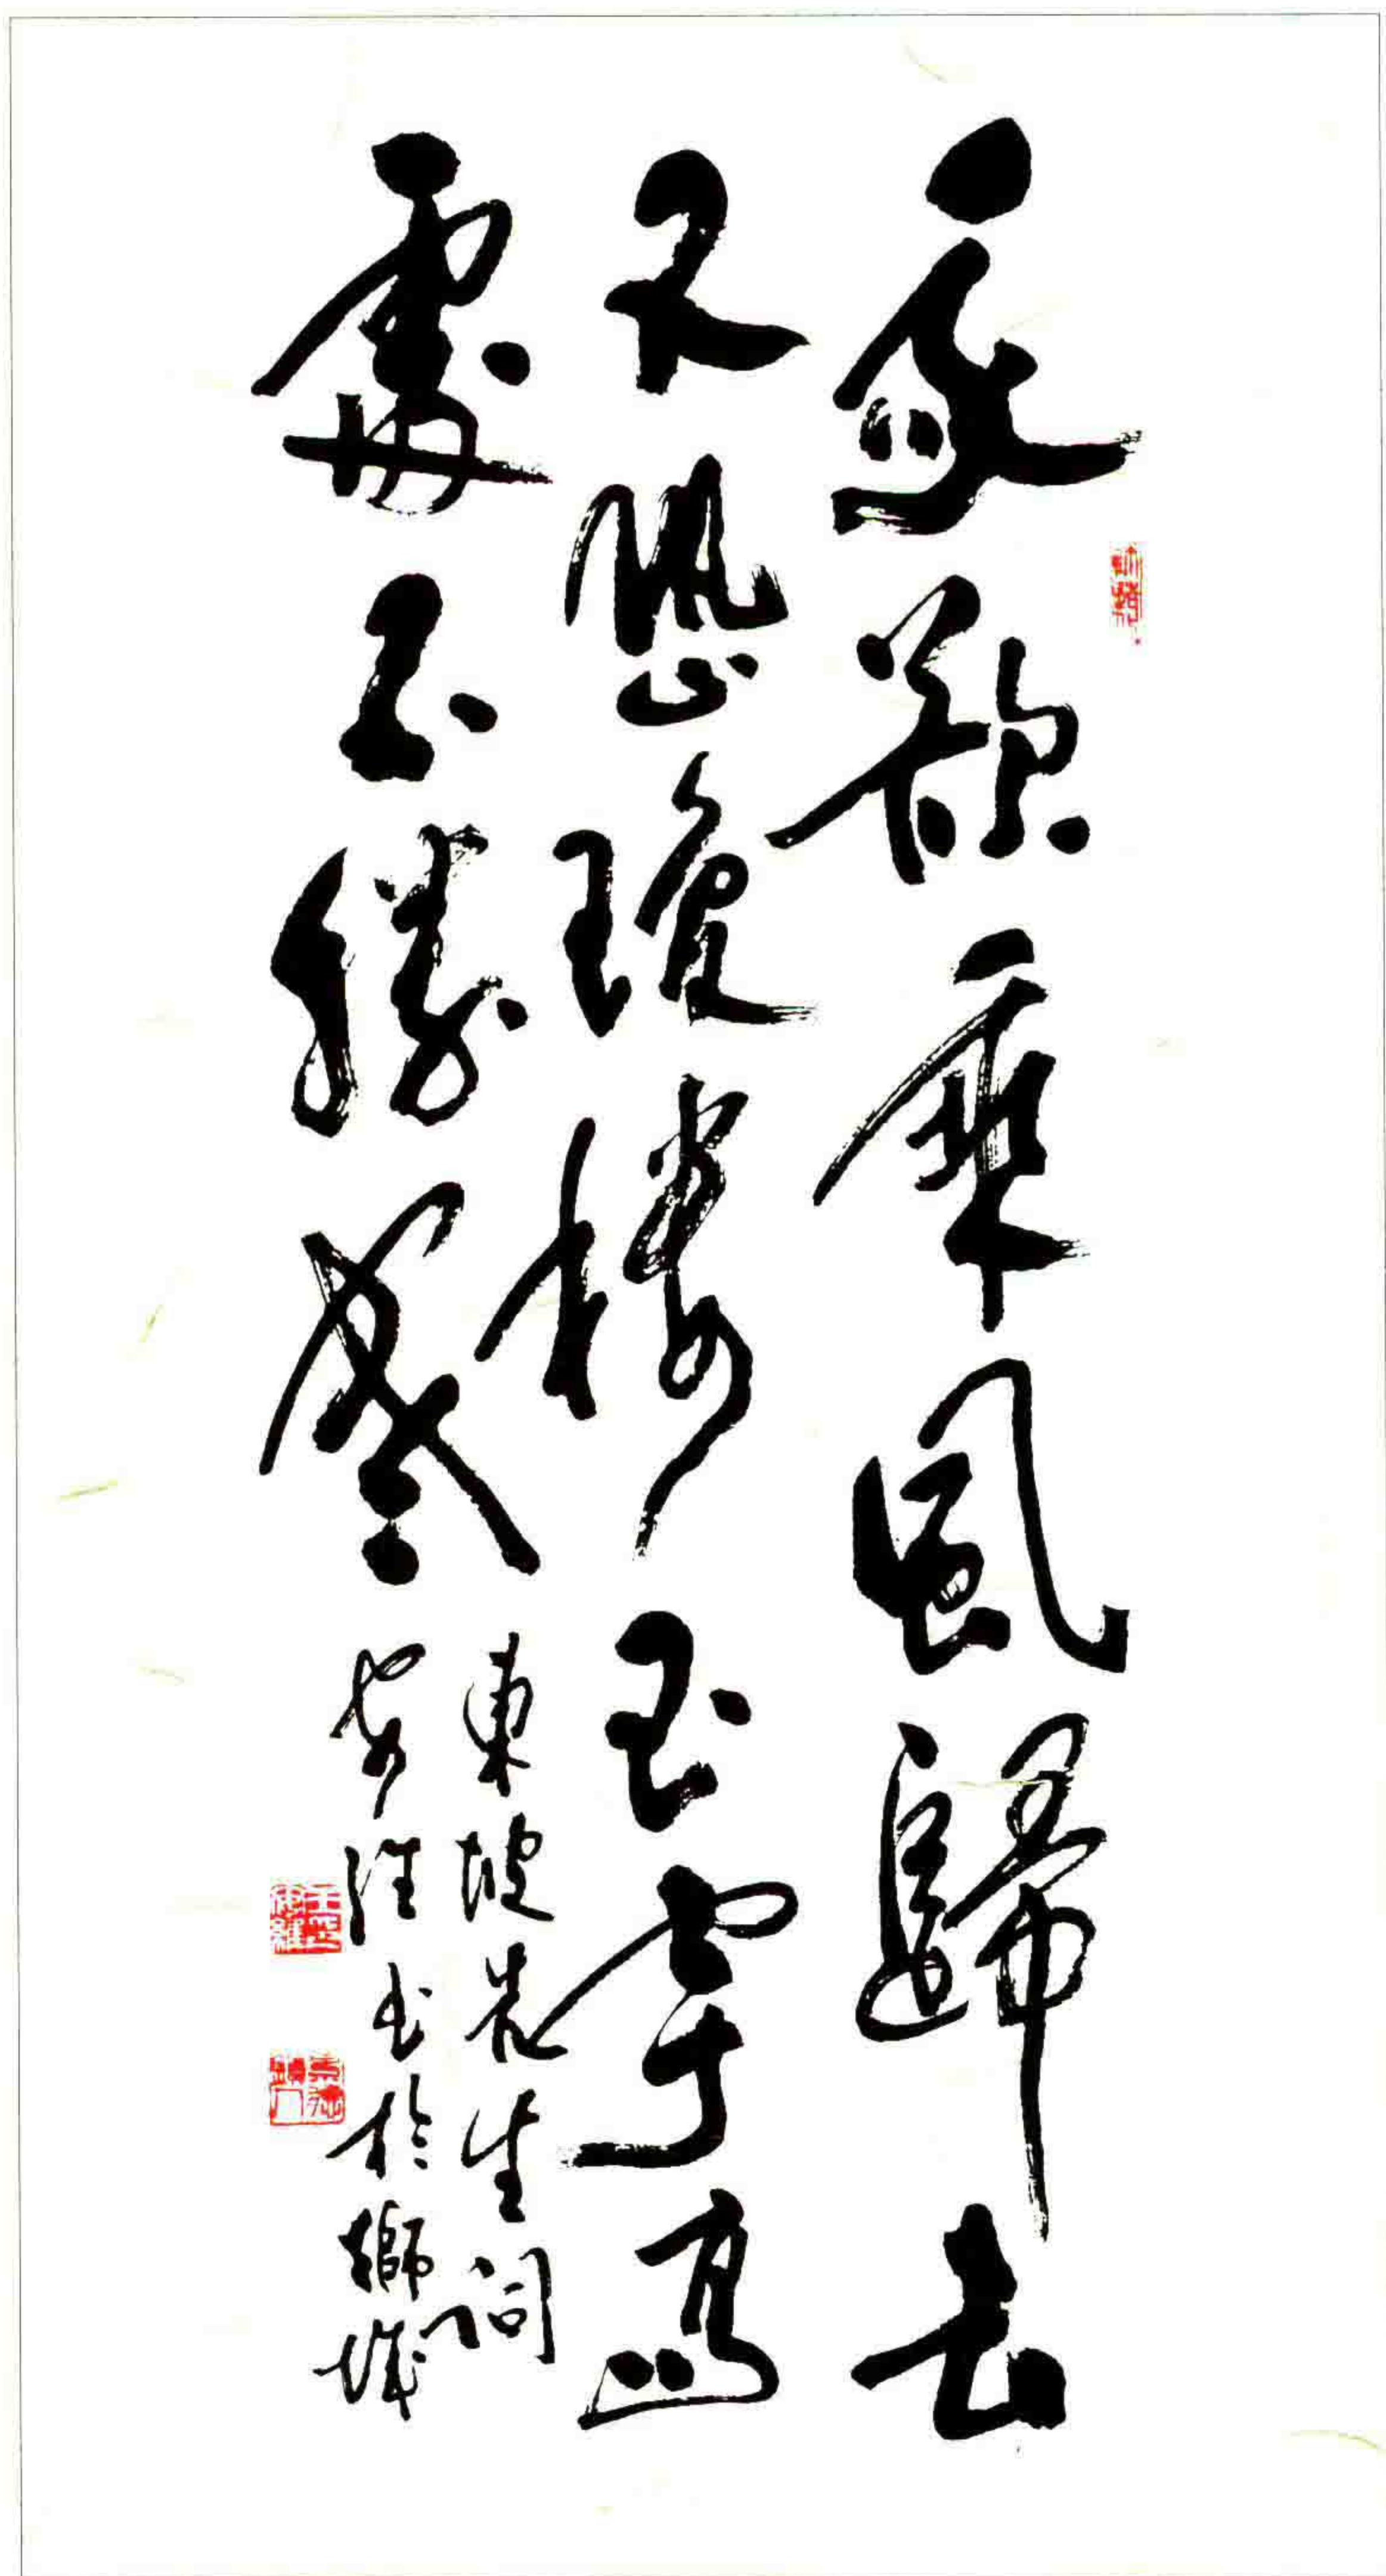 我欲乘風歸去
又恐瓊樓玉宇高
處不勝寒
東坡先生詞
書於獅城